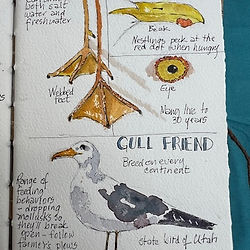 both salt
water and
freshwater
Beak
Nestlings peck at the
red dot when hungry
Webbed
feet
Eye
Many live to
30 years
GULL FRIEND
Breed on every
continent
Range of
feeding
behaviors
- dropping
mollusks so
they'll break
open - follow
farmer's plows
State bird of Utah